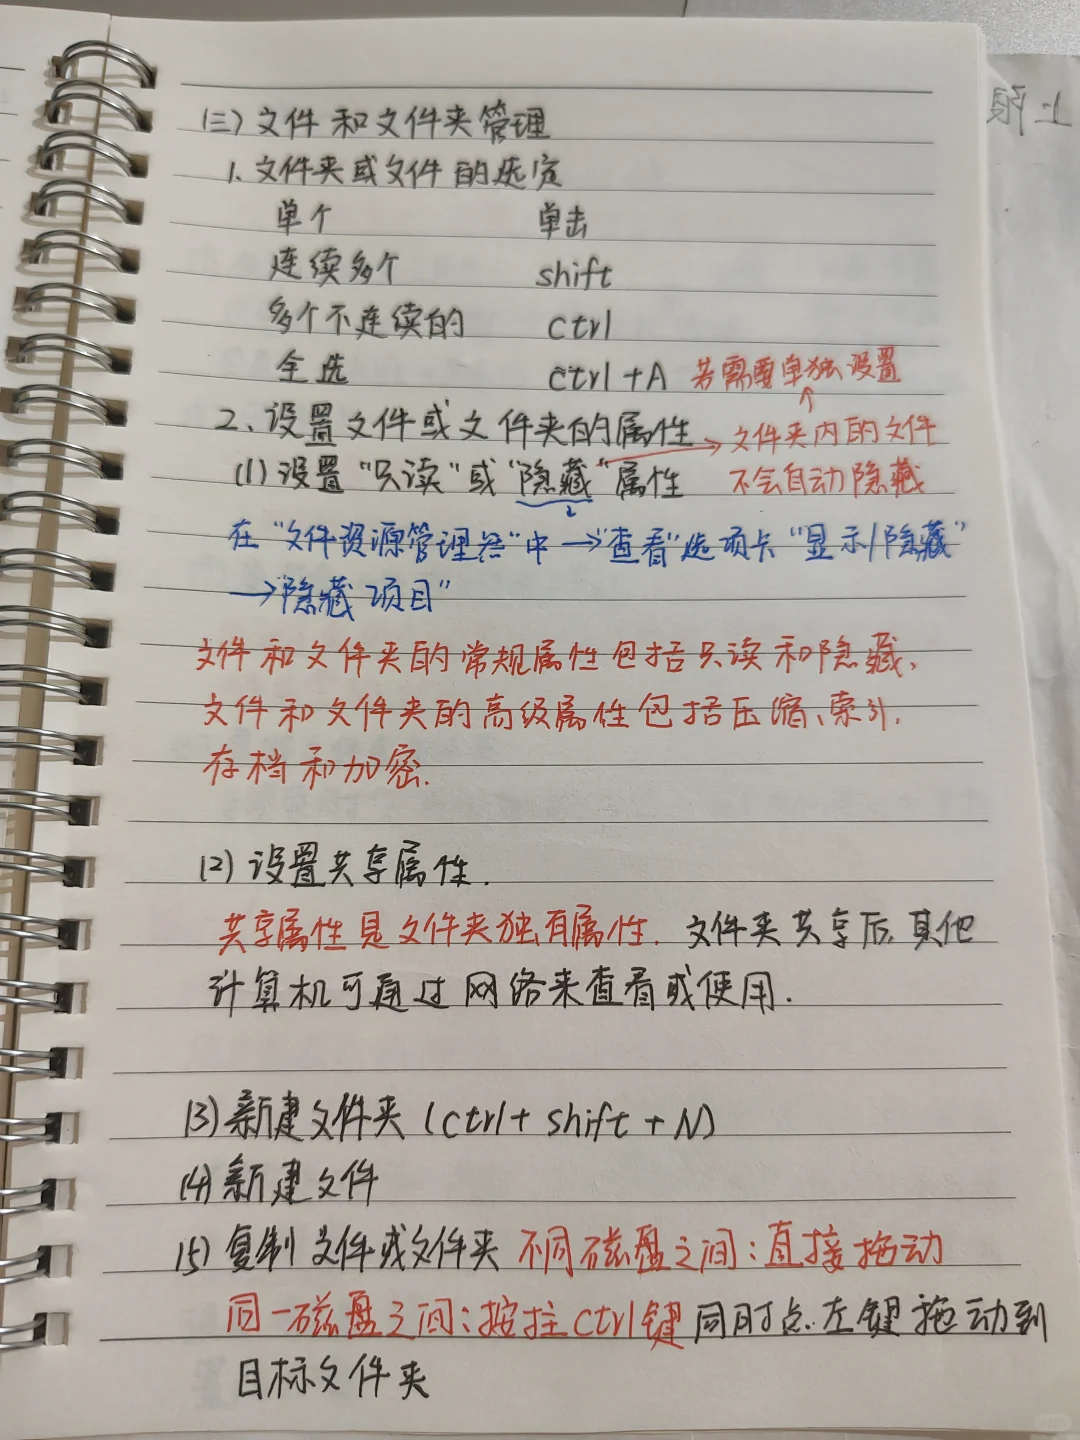 (三)文件和文件夹管理
1、文件夹或文件的选定
单个 单击
连续多个 shift
多个不连续的 ctrl
全选 ctrl+A 若需要单独设置
2、设置文件或文件夹的属性 → 文件夹内的文件
(1)设置"只读"或"隐藏"属性 不会自动隐藏
在"文件资源管理器"中→"查看"选项卡"显示/隐藏"
→"隐藏项目"
文件和文件夹的常规属性包括只读和隐藏、
文件和文件夹的高级属性包括压缩、索引、
存档和加密.
(2)设置共享属性.
共享属性是文件夹独有属性. 文件夹共享后,其他
计算机可通过网络来查看或使用.
(3)新建文件夹(ctrl+shift+N)
(4)新建文件
(5)复制文件或文件夹 不同磁盘之间:直接拖动
同一磁盘之间:按住ctrl键同时点左键拖动到
目标文件夹
上限